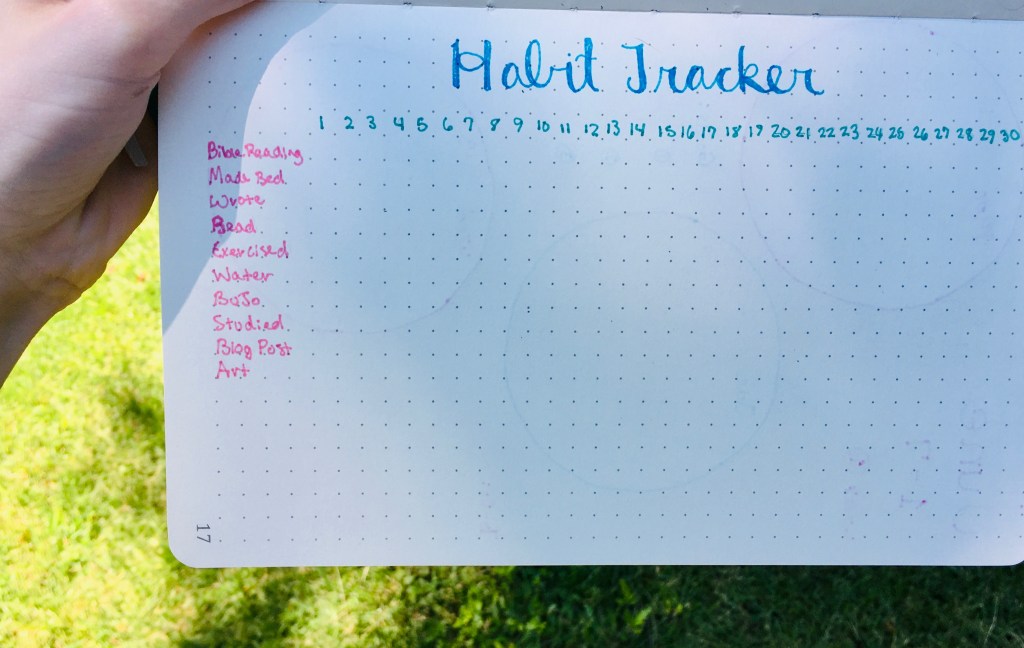 Habit Tracker
1 2 3 4 5 6 7 8 9 10 11 12 13 14 15 16 17 18 19 20 21 22 23 24 25 26 27 28 29 30
Bible Reading
Made Bed
Wrote
Read
Exercised
Water
BuJo
Studied
Blog Post
Art
17